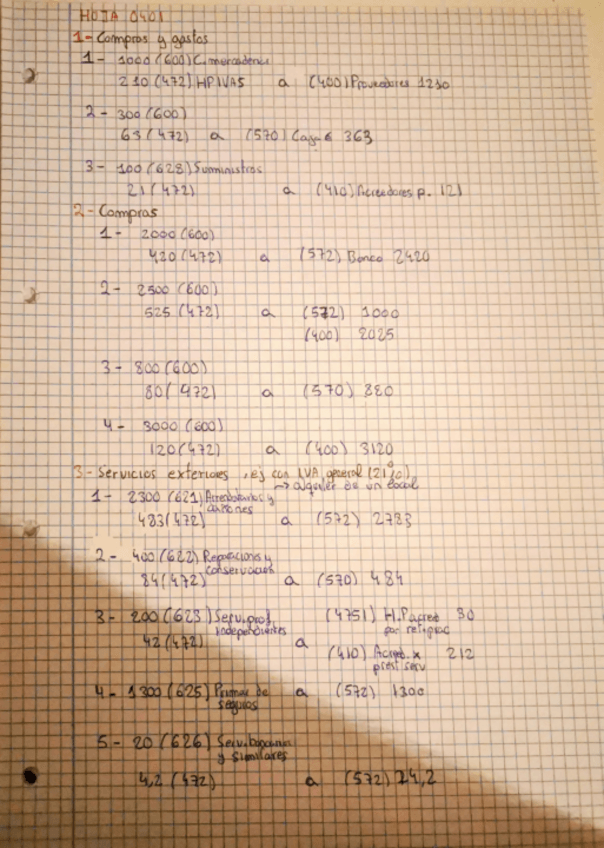 HOJA 0401
1- Compras y gastos
1- 1000 (600) C. mercaderías
210 (472) HP IVA S a (400) Proveedores 1210
2- 300 (600)
63 (472) a (570) Caja € 363
3- 100 (628) Suministros
21 (472) a (410) Acreedores p. 121
2- Compras
1- 2000 (600)
420 (472) a (572) Banco 2420
2- 2500 (600)
525 (472) a (572) 1000
(400) 2025
3- 800 (600)
80 (472) a (570) 880
4- 3000 (600)
120 (472) a (400) 3120
3- Servicios exteriores, ej con IVA general (21%)
→ alquiler de un local
1- 2300 (621) Arrendatarios y
cánones
483 (472) a (572) 2783
2- 400 (622) Reparaciones y
conservación
84 (472) a (570) 484
3- 200 (623) Serv. prof. (4751) H.P acreed 30
independientes por ret. prac
42 (472) a
(410) Acreed. x 212
prest serv
4- 1300 (625) Primas de a (572) 1300
seguros
5- 20 (626) Serv. bancarios
y similares
4,2 (472) a (572) 24,2